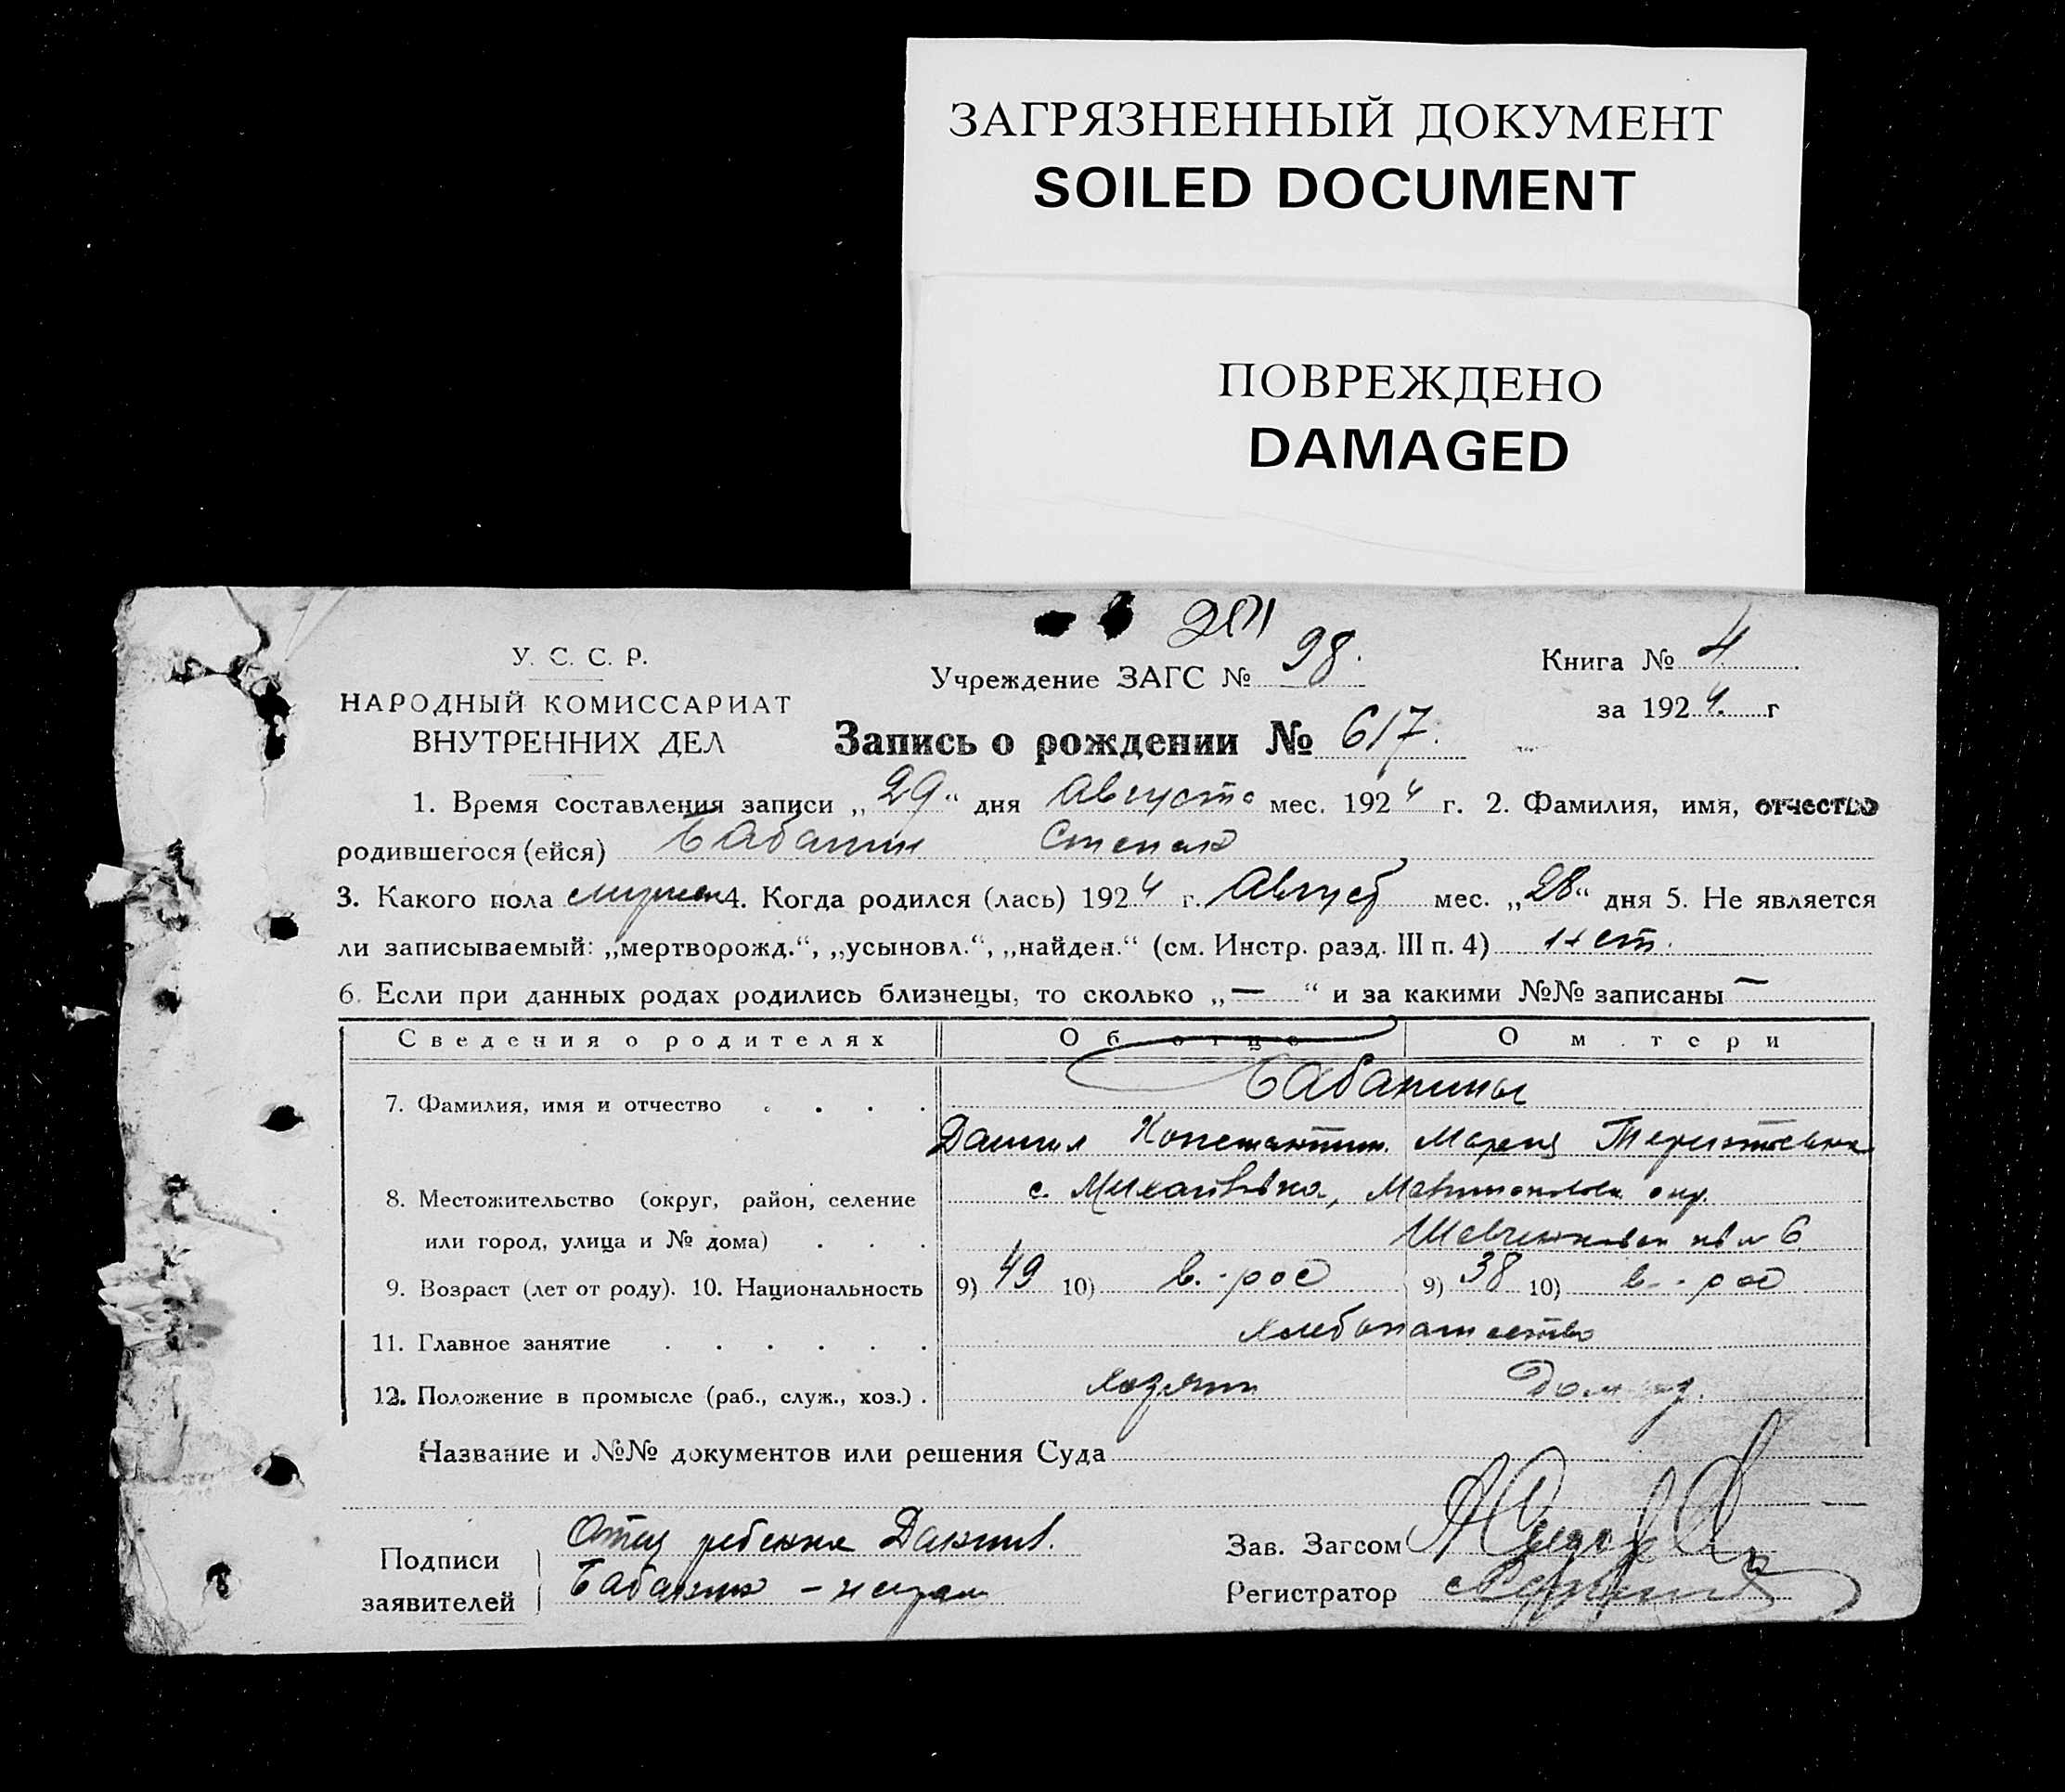 ЗАГРЯЗНЕННЫЙ ДОКУМЕНТ
SOILED DOCUMENT
ПОВРЕЖДЕНО
DAMAGED
У. С. С. Р.
НАРОДНЫЙ КОМИССАРИАТ
ВНУТРЕННИХ ДЕЛ
Учреждение ЗАГС № 98.
Книга № 4
за 1924 г
Запись о рождении № 617.
1. Время составления записи „29“ дня Августа мес. 1924 г. 2. Фамилия, имя, отчество
родившегося (ейся) Бабанин Степан
3. Какого пола мужск 4. Когда родился (лась) 1924 г. Август мес. „28“ дня 5. Не является
ли записываемый: „мертворожд.“, „усыновл.“, „найден.“ (см. Инстр. разд. III п. 4) нет.
6. Если при данных родах родились близнецы, то сколько „—“ и за какими №№ записаны —
Сведения о родителях Об отце О м тери
7. Фамилия, имя и отчество . . . . Бабанины
Даниил Константин. Мария Терентьевна
8. Местожительство (округ, район, селение с. Михайловка,
или город, улица и № дома) . . . № 6
9. Возраст (лет от роду). 10. Национальность 9) 49 10) в.-рос 9) 38 10) в.-рос
11. Главное занятие . . . . . . хлебопашество
12. Положение в промысле (раб., служ., хоз.) . хозяин
Название и №№ документов или решения Суда
Подписи заявителей Отец ребенка Данил.
Бабанин –
Зав. Загсом
Регистратор